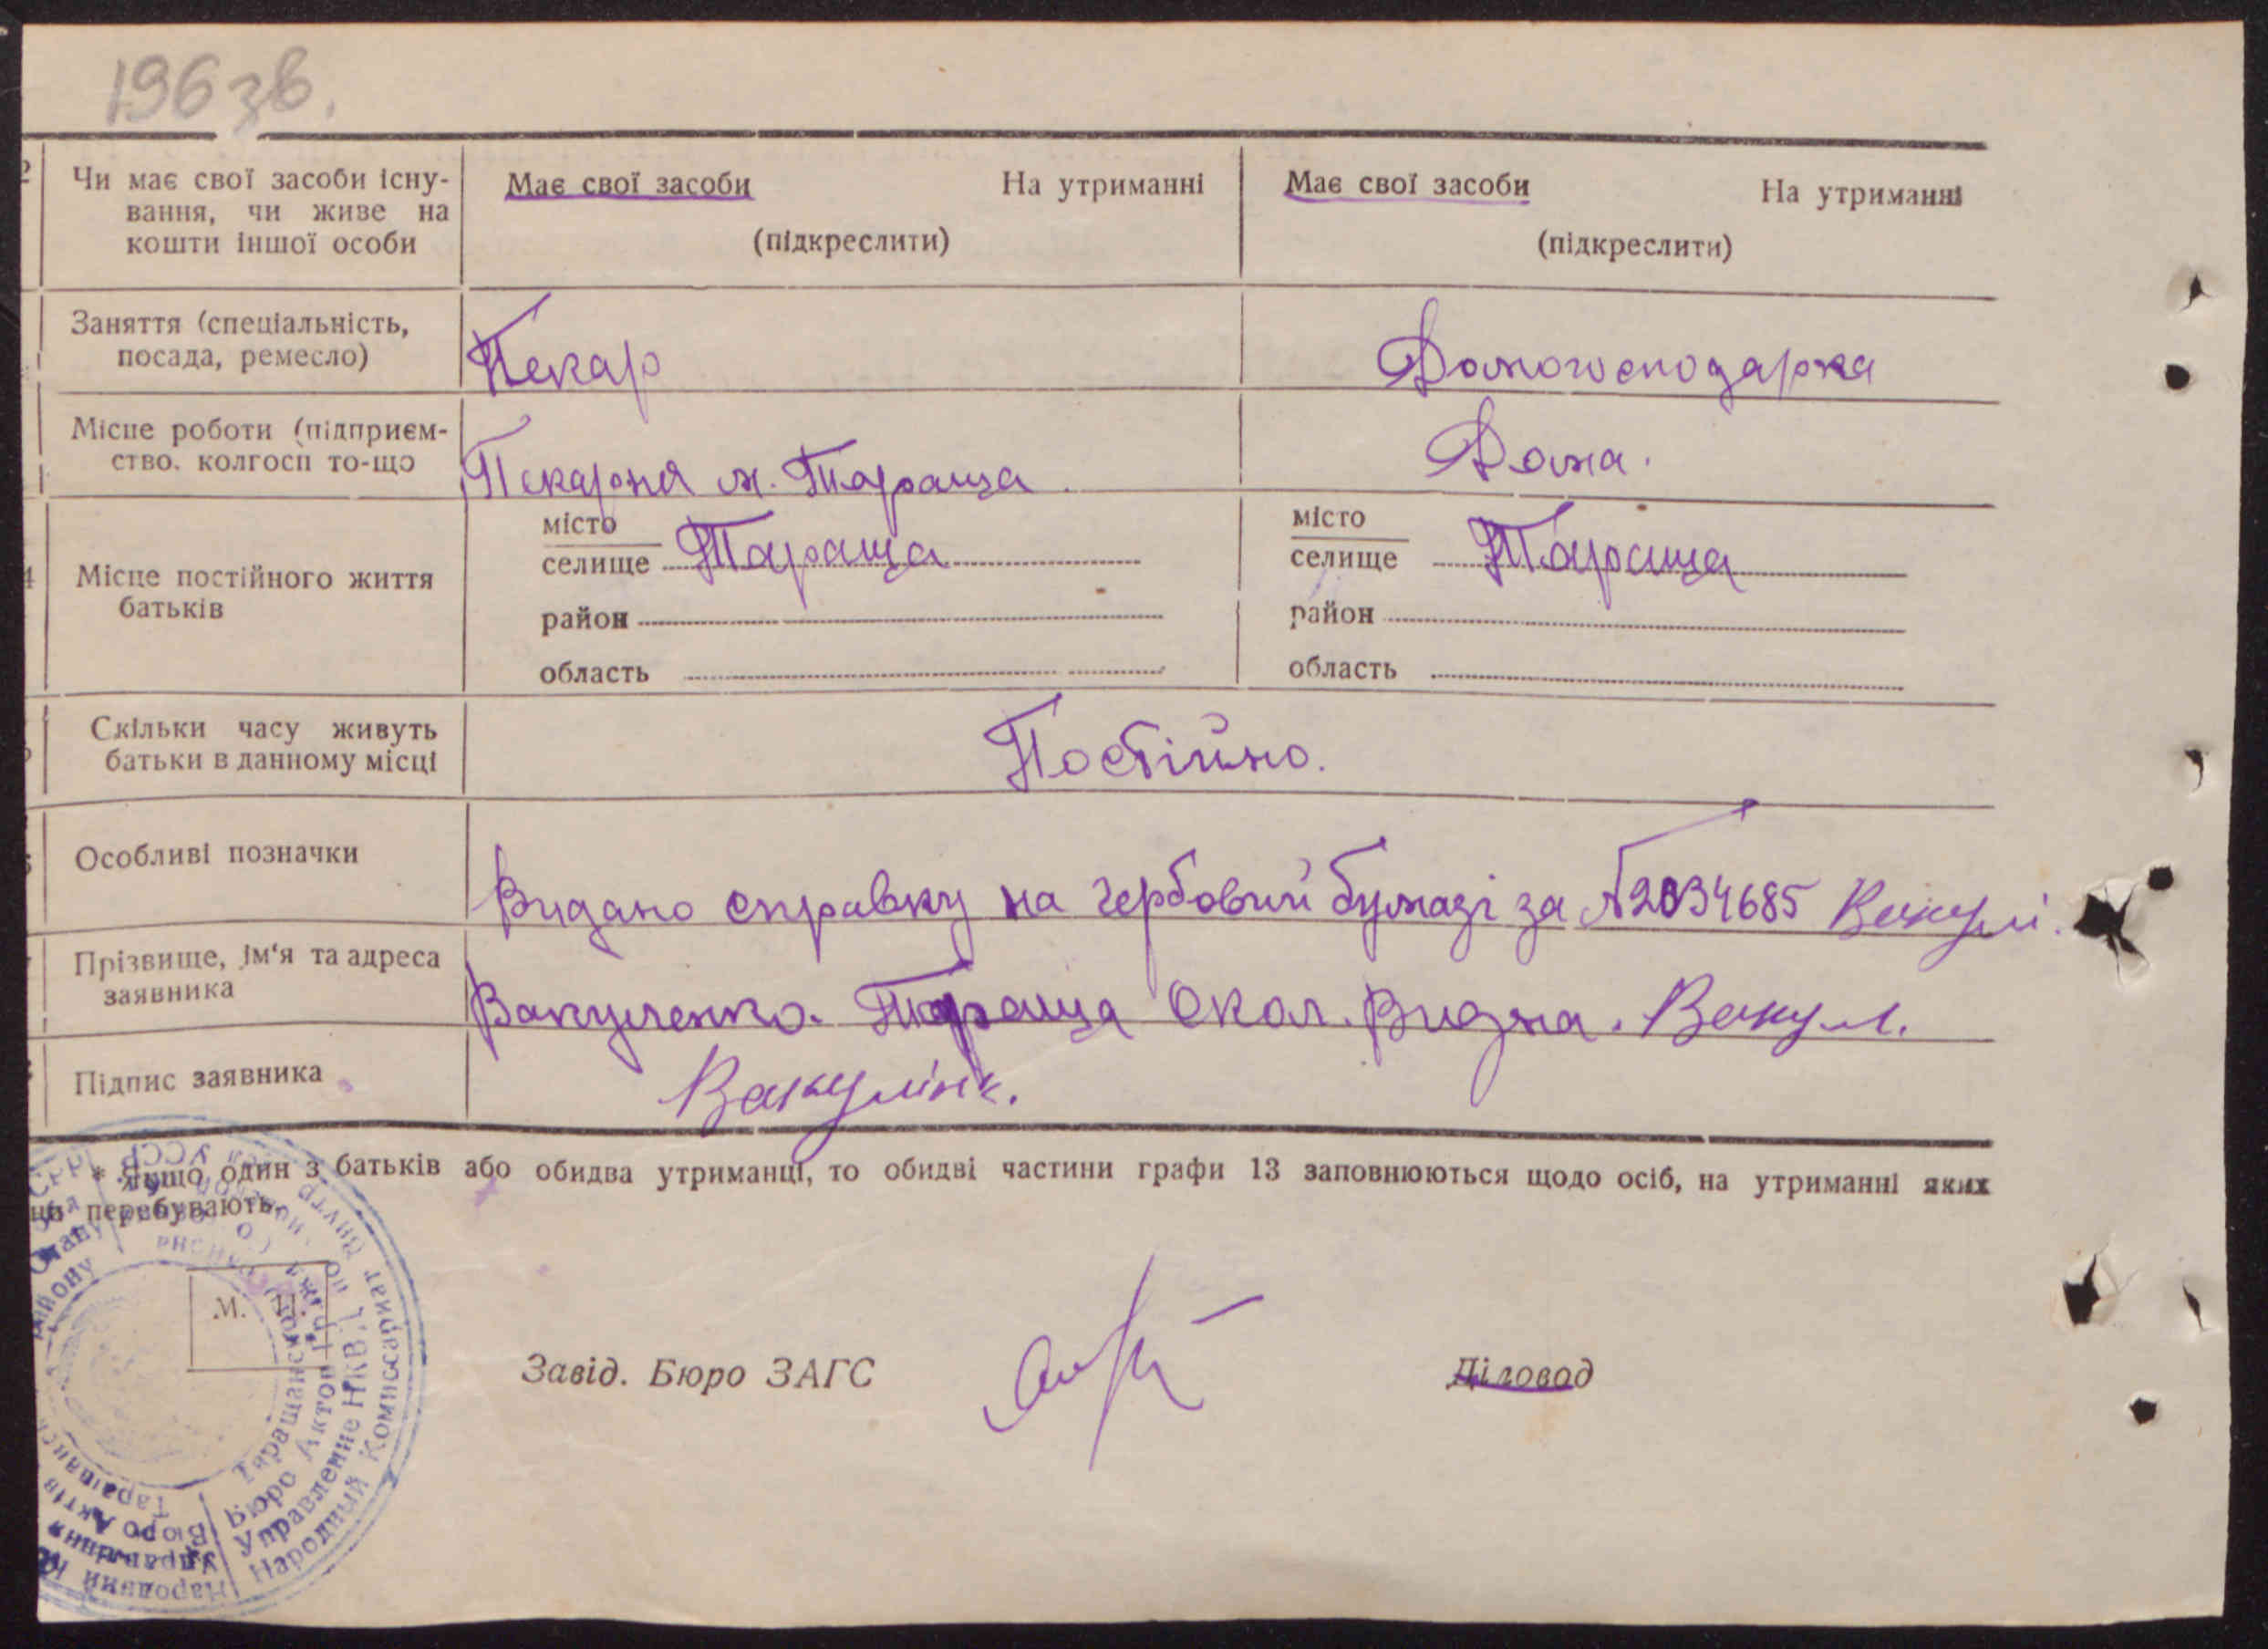 196 зв.
Чи має свої засоби існу-
вання, чи живе на
кошти іншої особи
Має свої засоби На утриманні
(підкреслити)
Має свої засоби На утриманні
(підкреслити)
Заняття (спеціальність,
посада, ремесло)
Пекар
Домогосподарка
Місце роботи (підприєм-
ство. колгосп то-що
Пекарня м. Тараща.
Дома.
4
Місце постійного життя
батьків
місто
селище Тараща
район
область
місто
селище Тараща
район
область
Скільки часу живуть
батьки в данному місці
Постійно.
Особливі позначки
Видано справку на гербовий бумазі за №2034685
Прізвище, ім'я та адреса
заявника
Вакуленко. Тараща Окол. Вакул.
Підпис заявника
* Якщо один з батьків або обидва утриманці, то обидві частини графи 13 заповнюються щодо осіб, на утриманні яких
перебувають.
М. П.
Завід. Бюро ЗАГС
Діловод
УССР
Народный Комиссариат Внутр
Управление НКВД по
Бюро Актов Гражд
Таращанского
Народний
Управління
Бюро Актів
Таращанськ